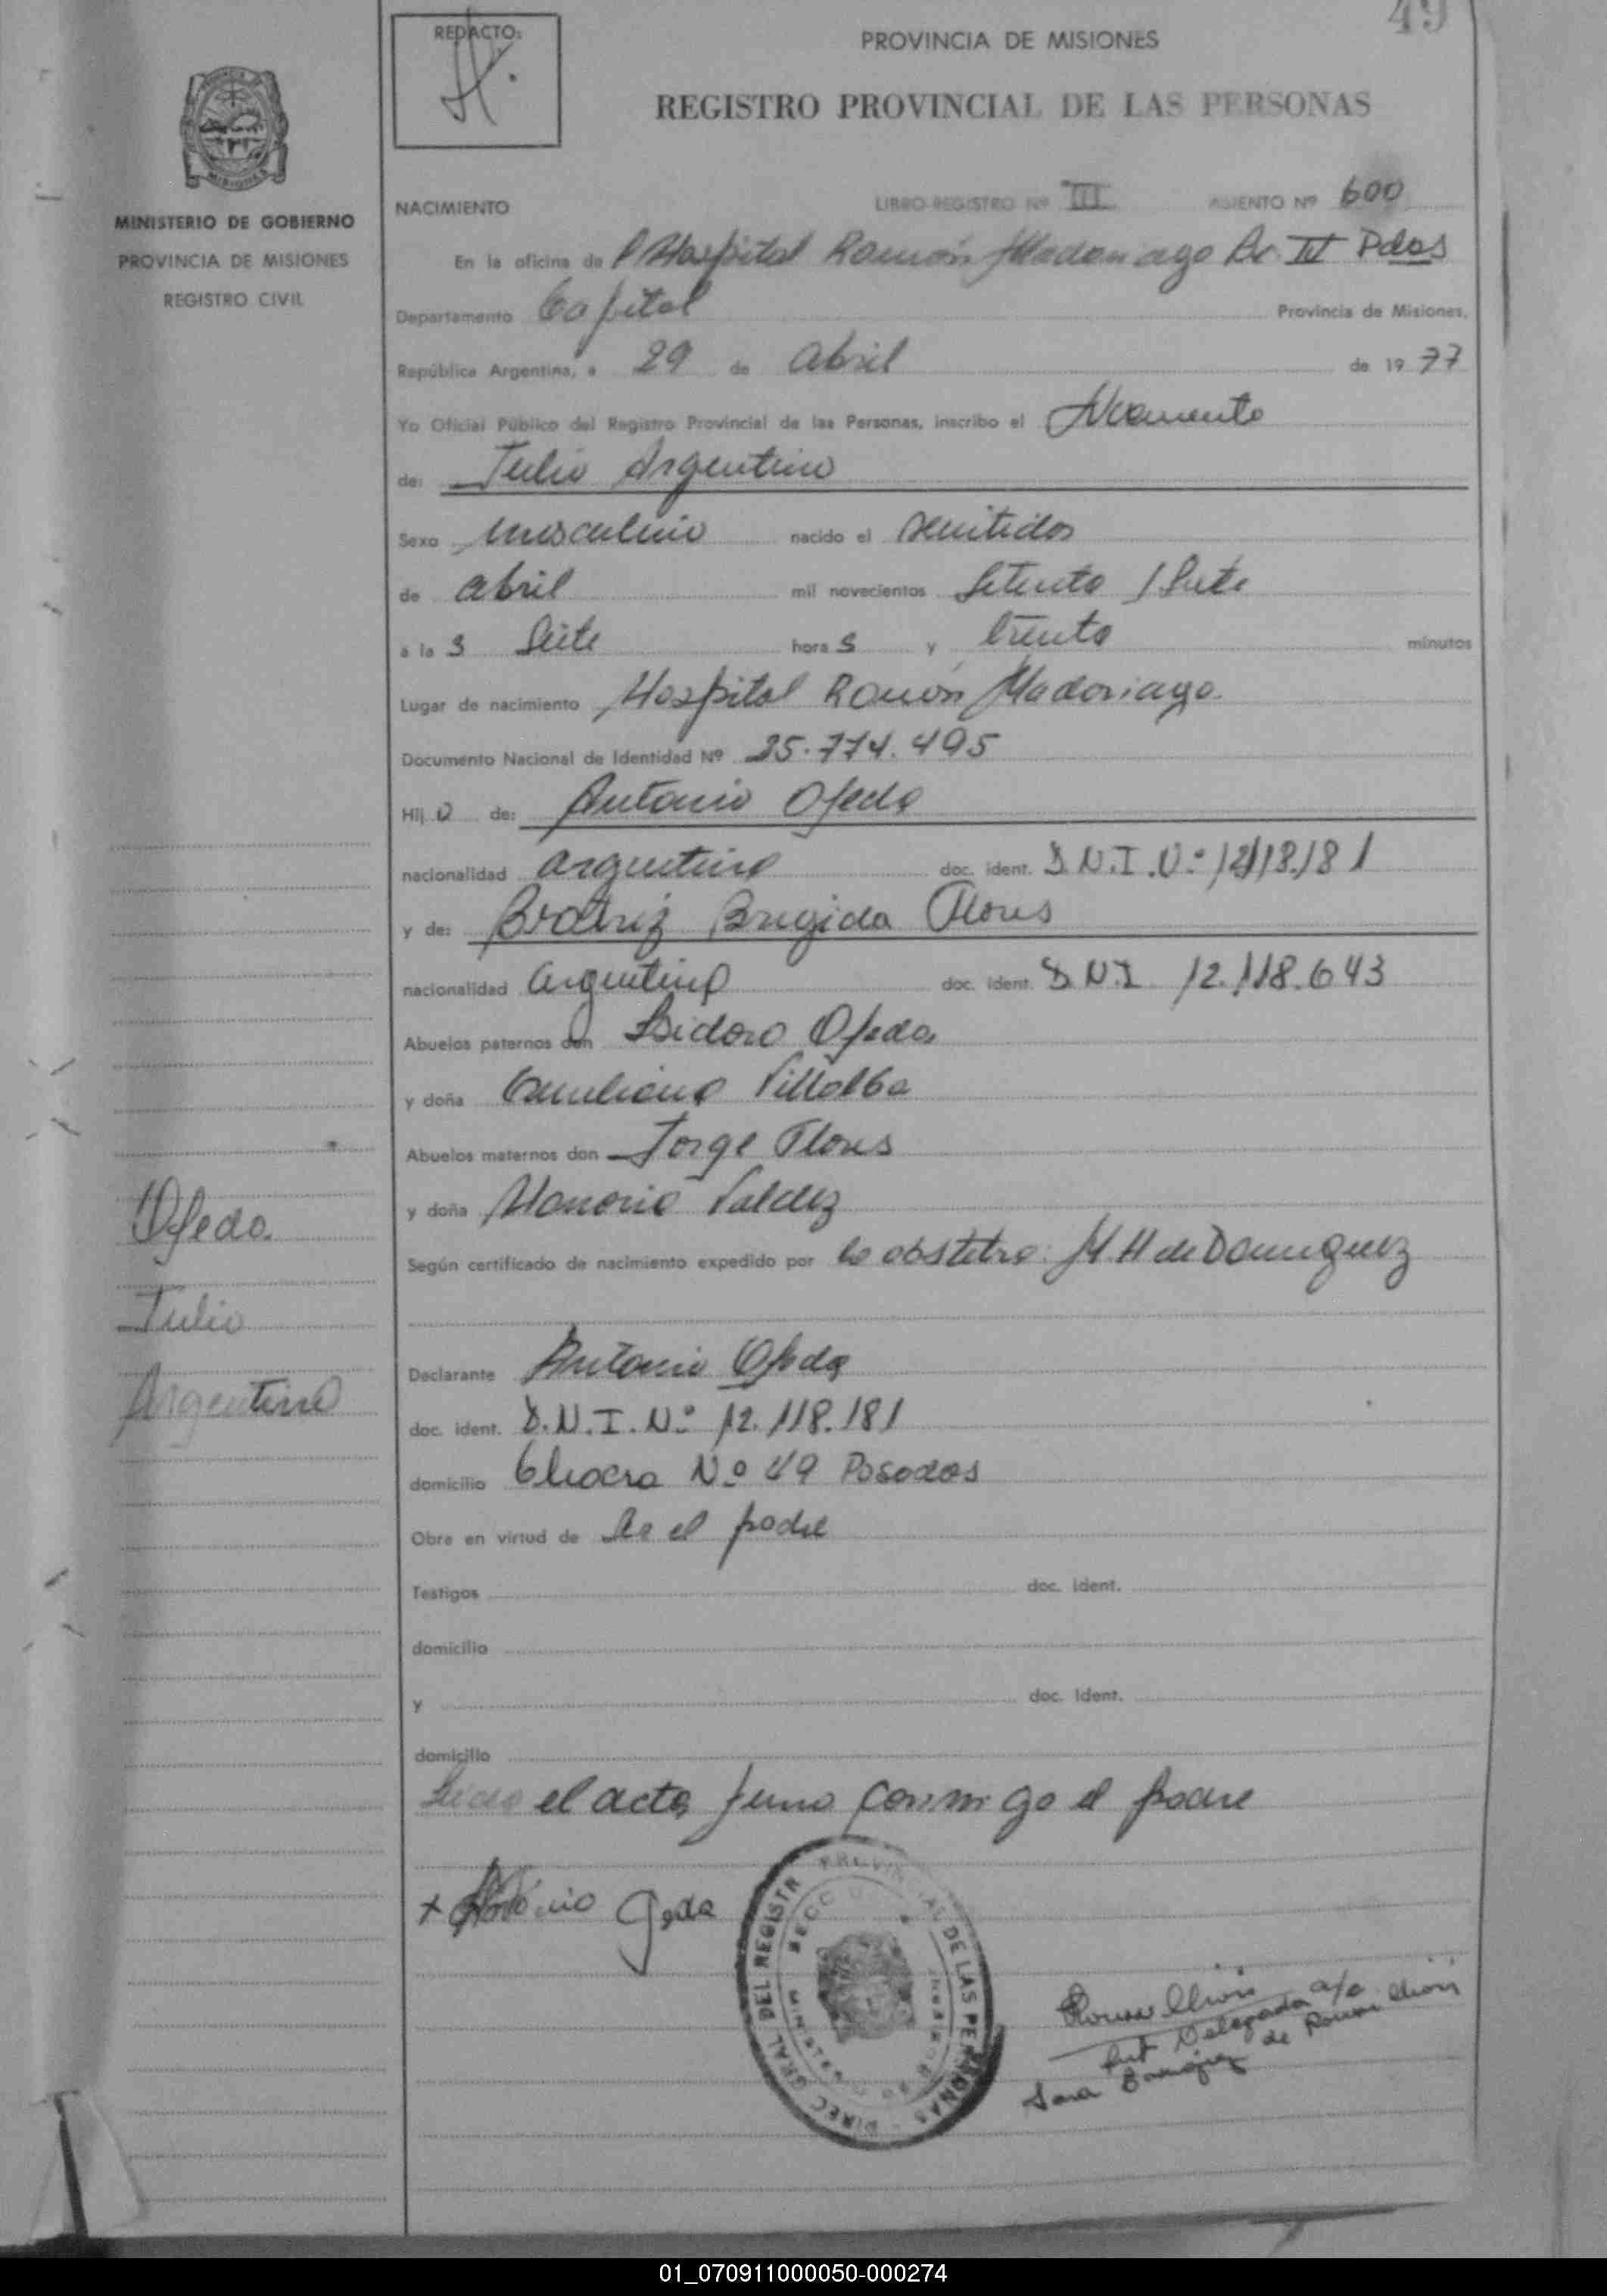 49
REDACTO:
PROVINCIA DE MISIONES
REGISTRO PROVINCIAL DE LAS PERSONAS
MISIONES
MINISTERIO DE GOBIERNO
PROVINCIA DE MISIONES
REGISTRO CIVIL
NACIMIENTO LIBRO-REGISTRO Nº III ASIENTO Nº 600
En la oficina de Hospital Ramón Madariaga IV Pdas
Departamento Capital Provincia de Misiones,
República Argentina, a 29 de abril de 1977
Yo Oficial Público del Registro Provincial de las Personas, inscribo el Nacimiento
de: Julio Argentino
Sexo masculino nacido el veintidos
de abril mil novecientos setenta y siete
a las siete horas y treinta minutos
Lugar de nacimiento Hospital Ramón Madariaga.
Documento Nacional de Identidad Nº 25.774.495
Hijo de: Antonio Ojeda
nacionalidad argentina doc. ident. D.N.I.Nº 12.118.181
y de: Beatriz Brigida Flores
nacionalidad argentina doc. ident. D.N.I. 12.118.643
Abuelos paternos don Isidoro Ojeda
y doña Emiliana Villalba
Abuelos maternos don Jorge Flores
y doña Honoria Valdez
Según certificado de nacimiento expedido por la obstetra M.H de Dominguez
Ojeda.
Julio
Argentino
Declarante Antonio Ojeda
doc. ident. D.N.I.Nº 12.118.181
domicilio Chacra Nº 49 Posadas
Obra en virtud de ser el padre
Testigos doc. ident.
domicilio
y doc. ident.
domicilio
el acta firma conmigo el padre
+ Antonio Ojeda
DIREC. GRAL. DEL REGISTRO PROVINCIAL DE LAS PERSONAS
Delegada a/c
Sara de
01_070911000050-000274